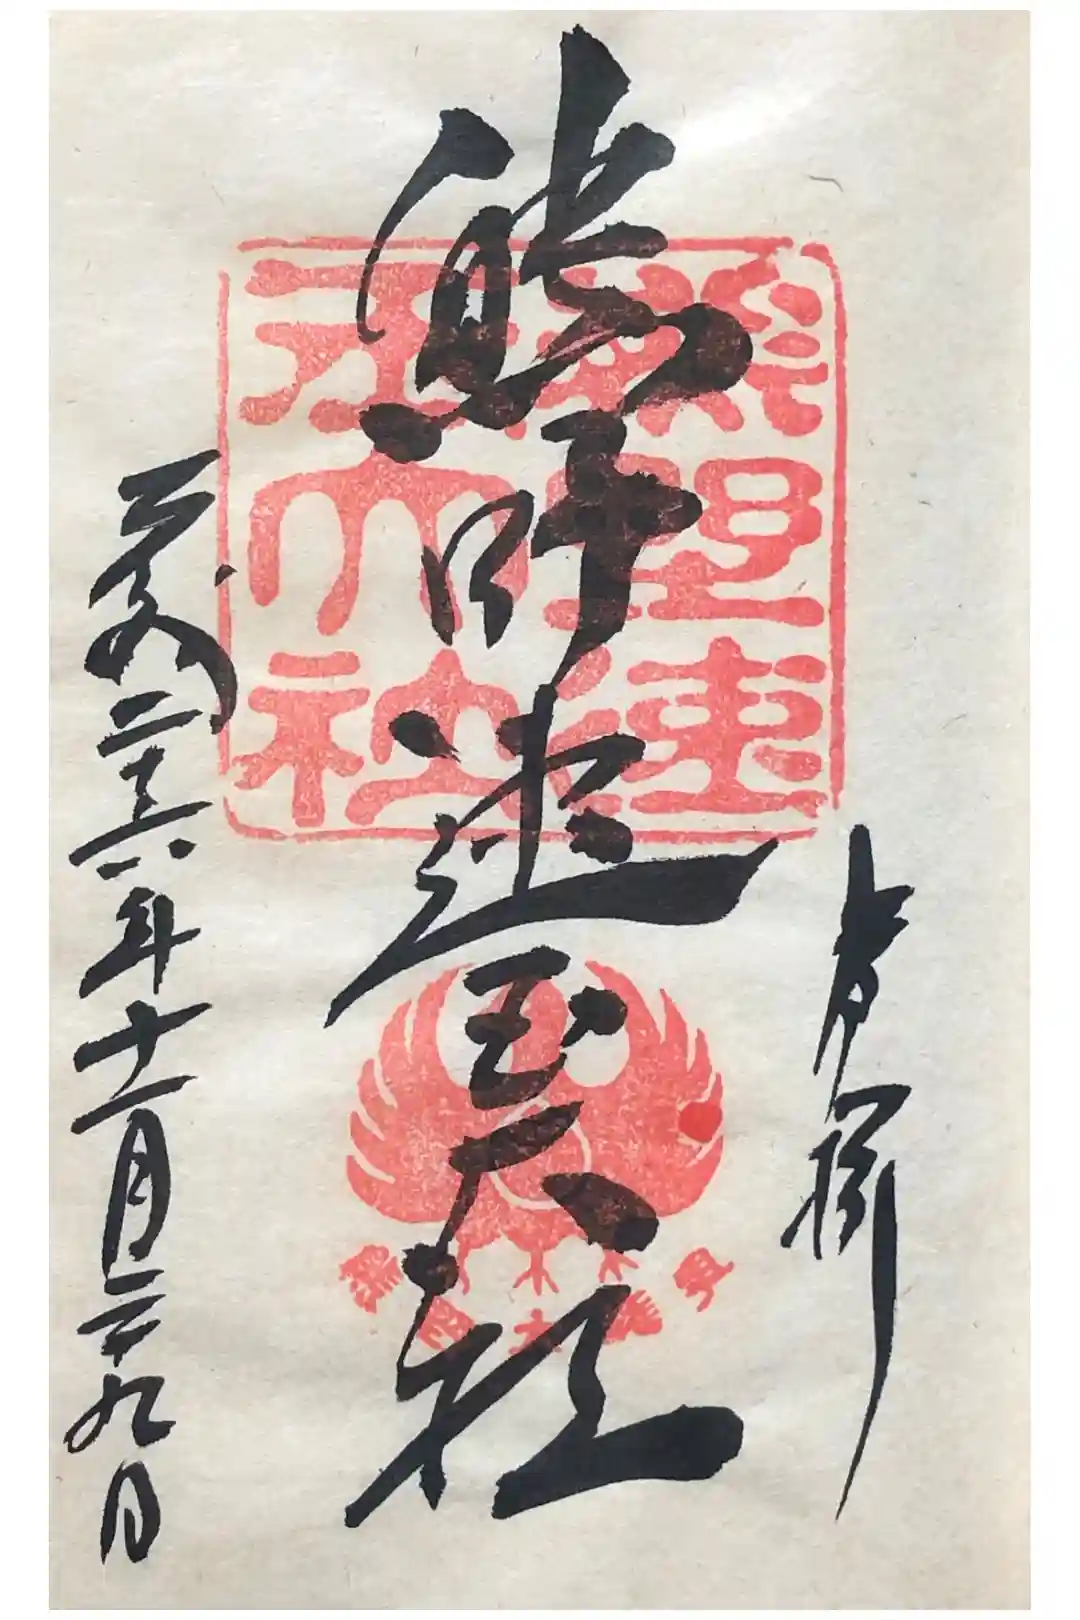 奉拝
熊野速玉大社
平成二十六年十一月二十九日
熊野速
玉大社
熊野大権現